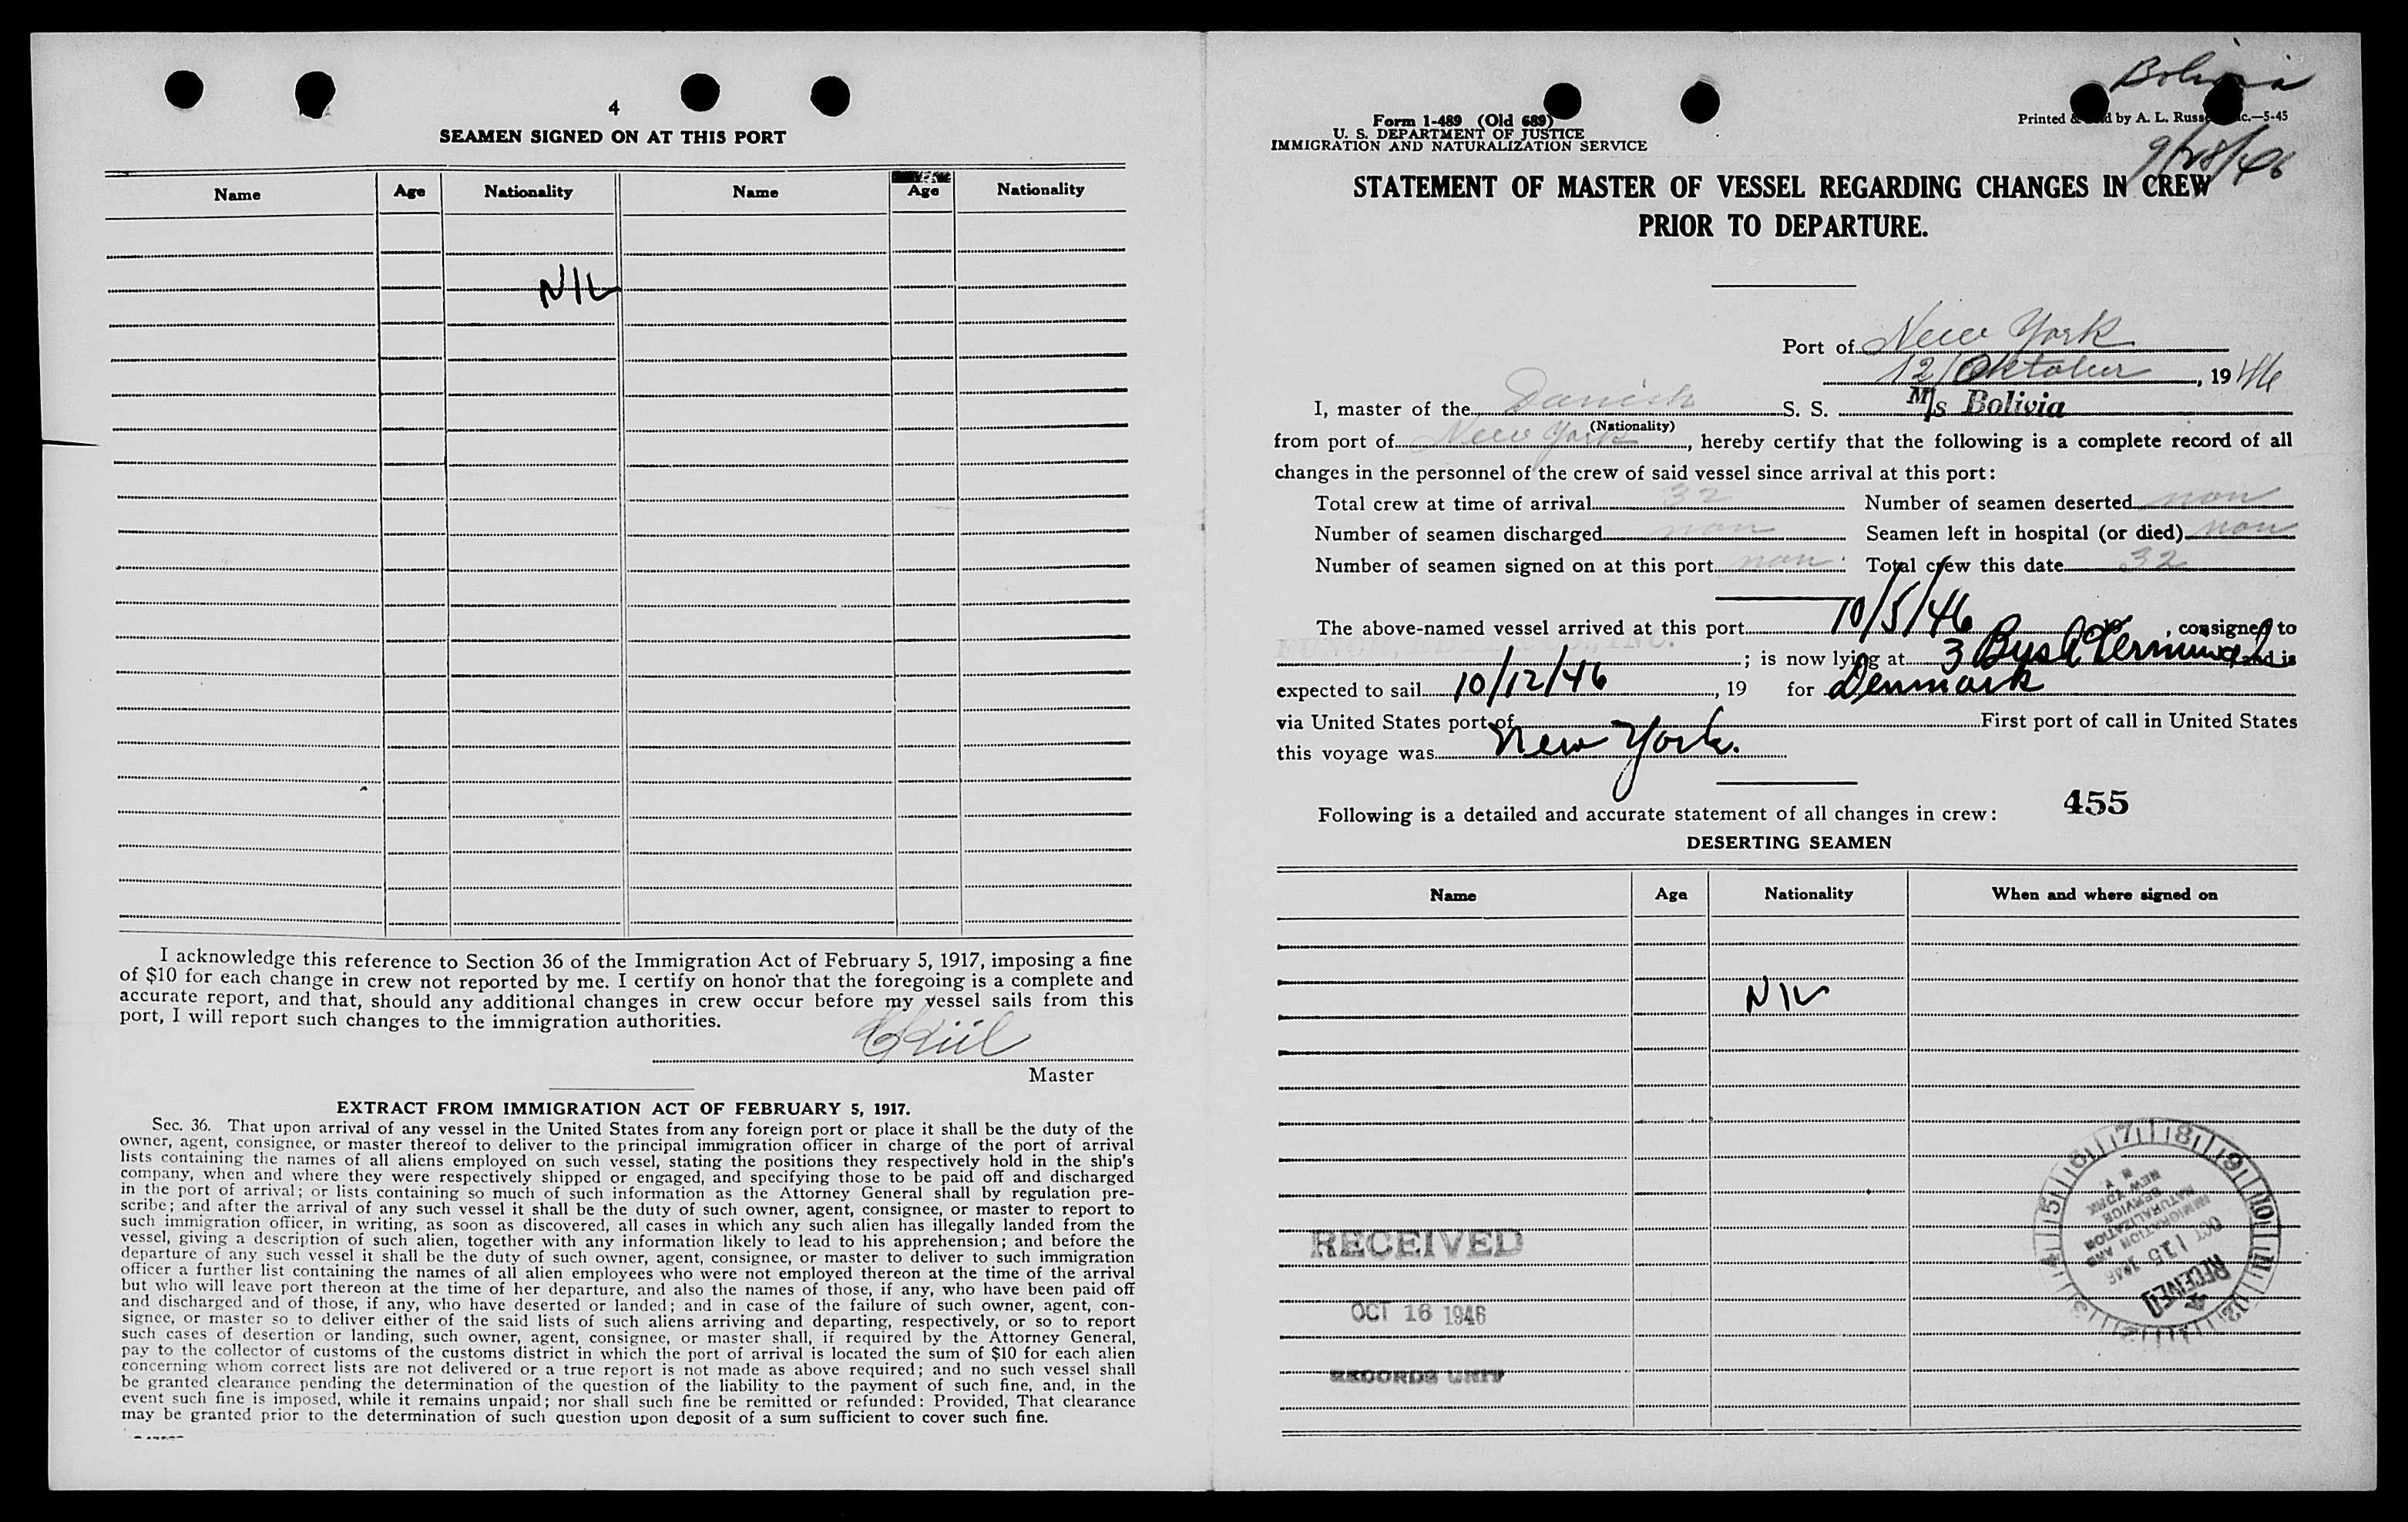 4
SEAMEN SIGNED ON AT THIS PORT
Name Age Nationality Name Age Nationality
NIL
I acknowledge this reference to Section 36 of the Immigration Act of February 5, 1917, imposing a fine
of $10 for each change in crew not reported by me. I certify on honor that the foregoing is a complete and
accurate report, and that, should any additional changes in crew occur before my vessel sails from this
port, I will report such changes to the immigration authorities.
Master
EXTRACT FROM IMMIGRATION ACT OF FEBRUARY 5, 1917.
Sec. 36. That upon arrival of any vessel in the United States from any foreign port or place it shall be the duty of the
owner, agent, consignee, or master thereof to deliver to the principal immigration officer in charge of the port of arrival
lists containing the names of all aliens employed on such vessel, stating the positions they respectively hold in the ship's
company, when and where they were respectively shipped or engaged, and specifying those to be paid off and discharged
in the port of arrival; or lists containing so much of such information as the Attorney General shall by regulation pre-
scribe; and after the arrival of any such vessel it shall be the duty of such owner, agent, consignee, or master to report to
such immigration officer, in writing, as soon as discovered, all cases in which any such alien has illegally landed from the
vessel, giving a description of such alien, together with any information likely to lead to his apprehension; and before the
departure of any such vessel it shall be the duty of such owner, agent, consignee, or master to deliver to such immigration
officer a further list containing the names of all alien employees who were not employed thereon at the time of the arrival
but who will leave port thereon at the time of her departure, and also the names of those, if any, who have been paid off
and discharged and of those, if any, who have deserted or landed; and in case of the failure of such owner, agent, con-
signee, or master so to deliver either of the said lists of such aliens arriving and departing, respectively, or so to report
such cases of desertion or landing, such owner, agent, consignee, or master shall, if required by the Attorney General,
pay to the collector of customs of the customs district in which the port of arrival is located the sum of $10 for each alien
concerning whom correct lists are not delivered or a true report is not made as above required; and no such vessel shall
be granted clearance pending the determination of the question of the liability to the payment of such fine, and, in the
event such fine is imposed, while it remains unpaid; nor shall such fine be remitted or refunded: Provided, That clearance
may be granted prior to the determination of such question upon deposit of a sum sufficient to cover such fine.
Bolivia
Form I-489 (Old 689)
U. S. DEPARTMENT OF JUSTICE
IMMIGRATION AND NATURALIZATION SERVICE
Printed & by A. L. 5-45
9/28/46
STATEMENT OF MASTER OF VESSEL REGARDING CHANGES IN CREW
PRIOR TO DEPARTURE.
Port of New York
12/Oktober, 1946
I, master of the Danish S. S. M/s Bolivia
(Nationality)
from port of New York, hereby certify that the following is a complete record of all
changes in the personnel of the crew of said vessel since arrival at this port:
Total crew at time of arrival 32 Number of seamen deserted non
Number of seamen discharged non Seamen left in hospital (or died) non
Number of seamen signed on at this port non Total crew this date 32
The above-named vessel arrived at this port 10/5/46, consigned to
; is now lying at 3 Bush Terminal and is
expected to sail 10/12/46, 19 for Denmark
via United States port of First port of call in United States
this voyage was New York.
Following is a detailed and accurate statement of all changes in crew: 455
DESERTING SEAMEN
Name Age Nationality When and where signed on
NIL
RECEIVED
OCT 16 1946
RECORDS UNIT
5 6 7 8 9 10 11 12
RECEIVED
OCT 15 1946
IMMIGRATION AND
NATURALIZATION
SERVICE
NEW YORK
N Y